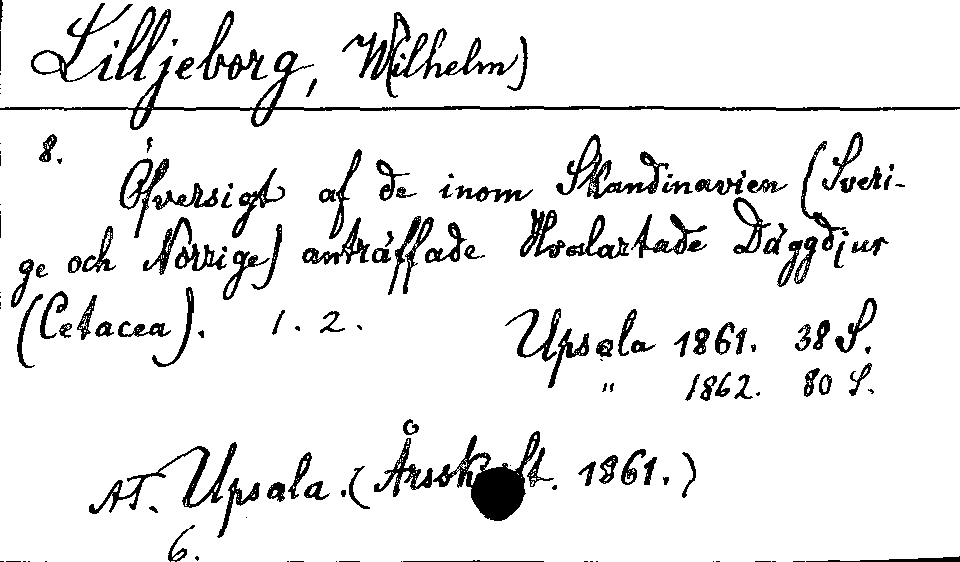 Lilljeborg, W(ilhelm)
8. Öfversigt af de inom Skandinavien (Sveri-
ge och Norrige) anträffade Hvalartade Däggdjur
(Cetacea). 1. 2. Upsala 1861. 38 S.
" 1862. 80 S.
AT. Upsala. (Årsskrift. 1861.)
6.